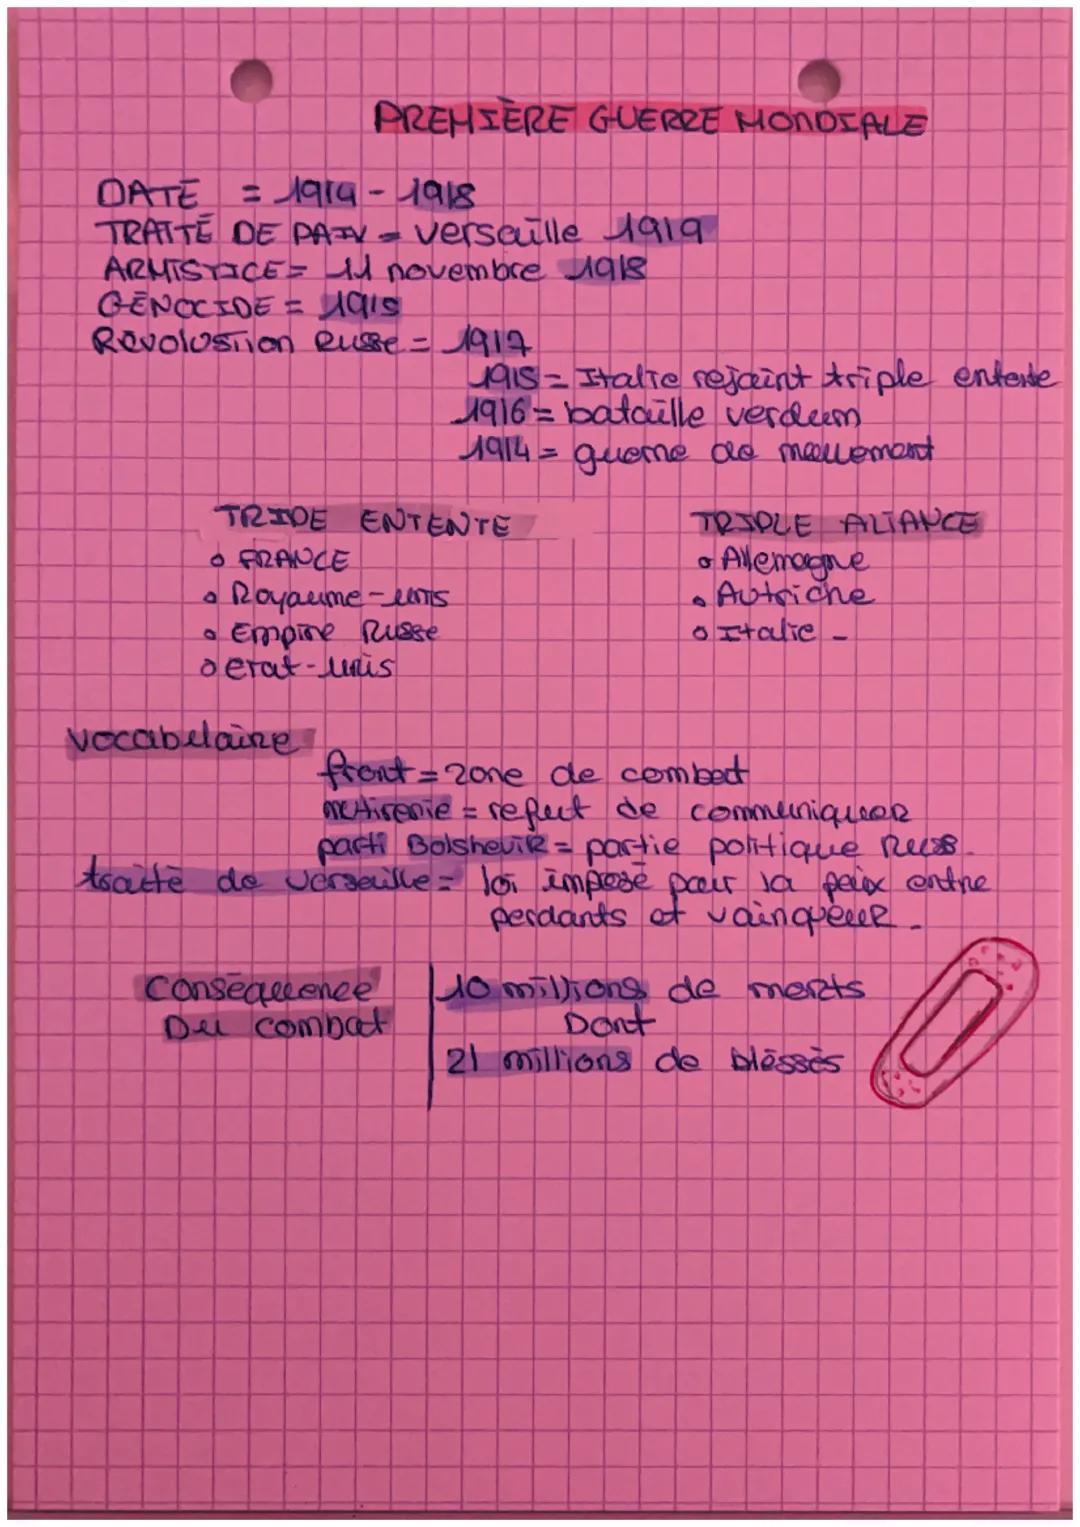 PREMIÈRE GUERRE MONDIALE
DATE = 1914 - 1918
TRAITÉ DE PAIX = Versaille 1919
ARMISTICE = 11 novembre 1918
GÉNOCIDE = 1915
Révolustion Russe = 1917
1915 = Italie rejoint triple entente
1916 = bataille verdum
1914 = guerre de mouvement
TRIPE ENTENTE
TRIPLE ALIANCE
FRANCE
Allemagne
Royaume-unis
Autriche
Empire Russe
Italie -
etat-unis
Vocabulaire
front = zone de combat
mutirenie = refut de communiquer
parti Bolshevik = partie politique Russ.
traité de Verseille = loi imposé pour la paix entre
perdants et vainqueur.
Conséquence
Du combat
10 millions de morts
Dont
21 millions de bléssés